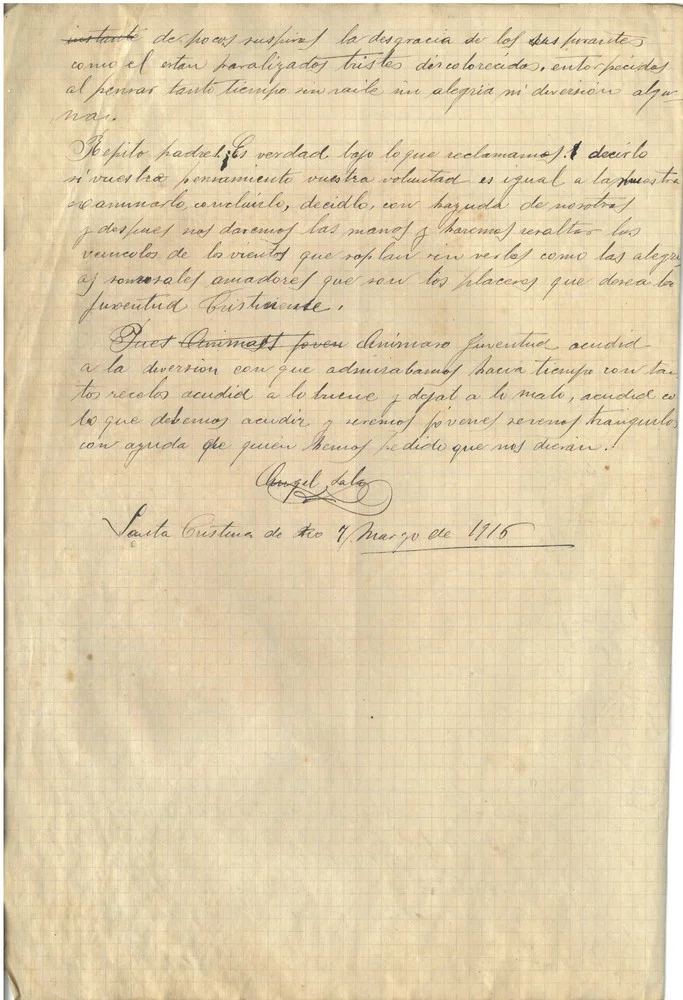 instante de pocos suspiros la desgracia de los suspirantes
como el estan paralizados tristes descolorecidos, entorpecidos
al pensar tanto tiempo sin baile ni alegria ni diversion algu-
nas.
Repito padres! ¿Es verdad bajo lo que reclamamos? decirlo
si vuestro pensamiento vuestra voluntad es igual a la nuestra
examinarlo, concluirlo, decidlo, con hayuda de nosotros
y despues nos daremos las manos y haremos resaltar los
veinculos de los vientos que soplan sin verlos como las alegri-
as amadores que son los placeres que desea la
Juventud Cristinense.
Pues Animaos joven Animaro juventud acudid
a la diversion con que admirabamos hacia tiempo con tan-
tos recelos acudid a lo buene y dejat a lo malo, acudid co
lo que debemos acudir y seremos jóvenes serenos tranquilos
con ayuda de quien hemos pedido que nos dieran.!
Angel Sala
Santa Cristina de Aro 7 Marzo de 1916